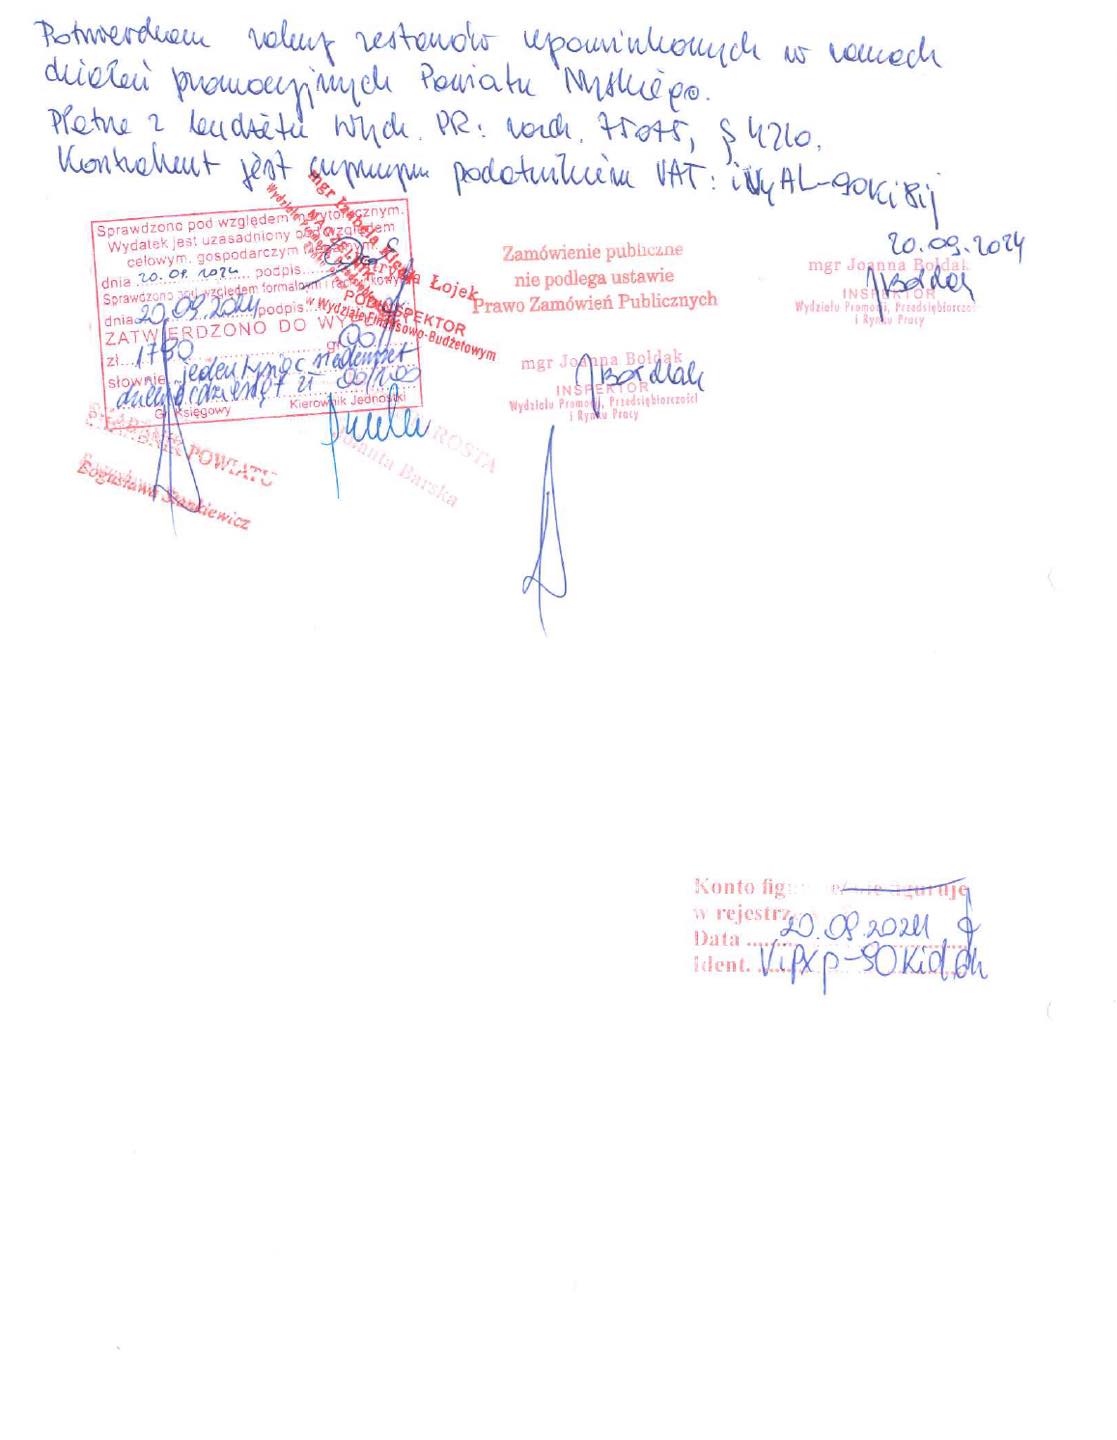 Potwierdzam zakup zestawów upominkowych w ramach
działań promocyjnych Powiatu Nyskiego.
Płatne z budżetu Wydz. PR: rozdz. 75075, § 4210.
Kontrahent jest czynnym podatnikiem VAT:
20.09.2024
mgr Joanna Bołdak
INSPEKTOR
Wydziału Promocji, Przedsiębiorczości
i Rynku Pracy
Sprawdzono pod względem merytorycznym.
Wydatek jest uzasadniony pod względem
celowym, gospodarczym
dnia 20.09.2024 podpis
Sprawdzono pod względem formalnym i rachunkowym
dnia 20.09.2024 podpis
ZATWIERDZONO DO WYPŁATY
zł 1790 gr 00
słownie jeden tysiąc siedemset
dziewięćdziesiąt zł 00/100
Gł. Księgowy Kierownik Jednostki
mgr Izabela
NACZELNIK
Łojek
PODINSPEKTOR
w Wydziale Finansowo-Budżetowym
Zamówienie publiczne
nie podlega ustawie
Prawo Zamówień Publicznych
mgr Joanna Bołdak
INSPEKTOR
Wydziału Promocji, Przedsiębiorczości
i Rynku Pracy
SKARBNIK POWIATU
Bogusława Stankiewicz
STAROSTA
Jolanta Barska
Konto figuruje/nie figuruje
w rejestrze
Data 20.09.2024
Ident.